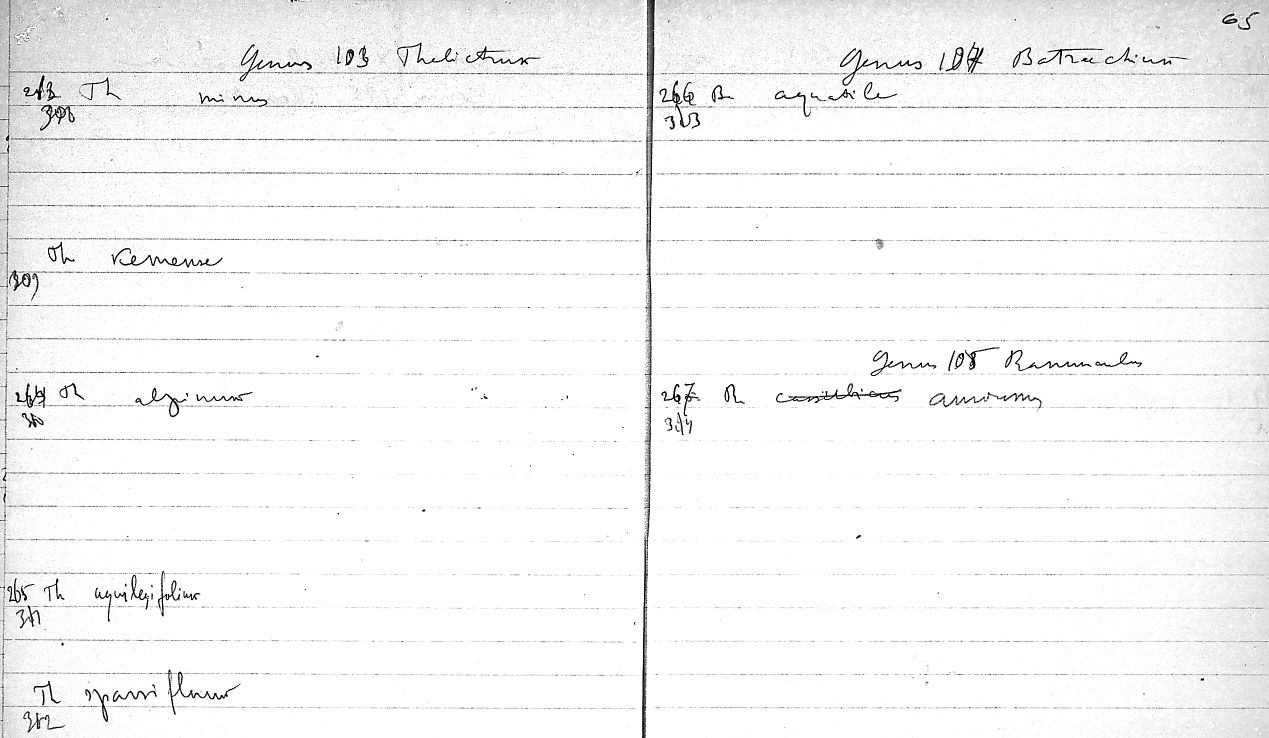 65
Genus 103 Thalictrum
263 Th minus
308
Th kemense
309
264 Th alpinum
310
265 Th aquilegifolium
311
Th sparsiflorum
312
Genus 104 Batrachium
266 B aquatile
313
Genus 105 Ranunculus
267 R
314